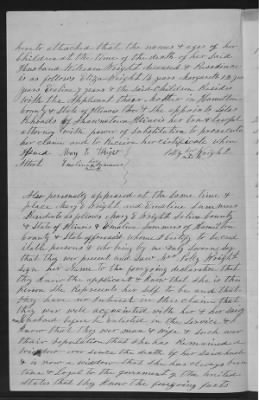 hereto attached that the names & ages of her
children at the time of the death of her said
Husband William Wright deceased & Residence
is as follows Eliza Wright 14 years Margaret 12
years Evaline 7 years & the said Children Resides
with the Applicant their Mother in Hamilton
County & State of Illinois & she appoints
of Shawneetown Illinois her true & lawful
attorney with power of substitution to prosecute
her claim and to receive her certificate when
issued Polly Wright
Attest Mary E Wright
Emeline Lammers

Also personally appeared at the same time &
place Mary E Wright and Emeline Lammers
Resident as follows Mary E Wright Saline County
& State of Illinois & Emeline Lammers of Hamilton
County & State aforesaid whom I certify to be respec
table persons & who being by me duly Sworn say
that they was present and saw Mrs Polly Wright
sign her Name to the foregoing declaration that
they know the applicant & know that she is the
person she Represents her self to be and that
they have no interest in this claim that
they was well acquainted with her & her said
Husband before he enlisted in the service &
know that they was man & wife & such was
their reputation that she has Remained a
widow ever since the death of her said husband
& is now a widow that she has always been
true & Loyal to the government of the United
States that they know the foregoing facts